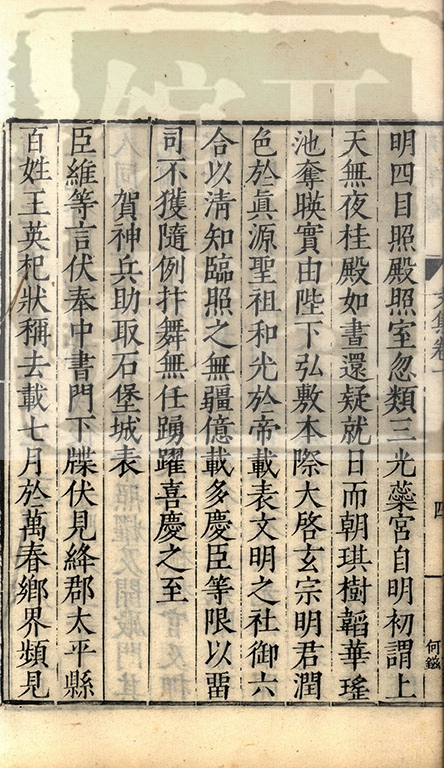 明四目照殿照室忽類三光蘂宮自明初謂上
天無夜桂殿如書還疑就日而朝琪樹韜華瑤
池奪暎實由陛下弘敷本際大啓玄宗明君潤
色於真源聖祖和光於帝載表文明之社御六
合以清知臨照之無疆億載多慶臣等限以畱
司不獲隨例抃舞無任踴躍喜慶之至
賀神兵助取石堡城表
臣維等言伏奉中書門下牒伏見絳郡太平縣
百姓王英杞狀稱去載七月於萬春鄉界頻見
四